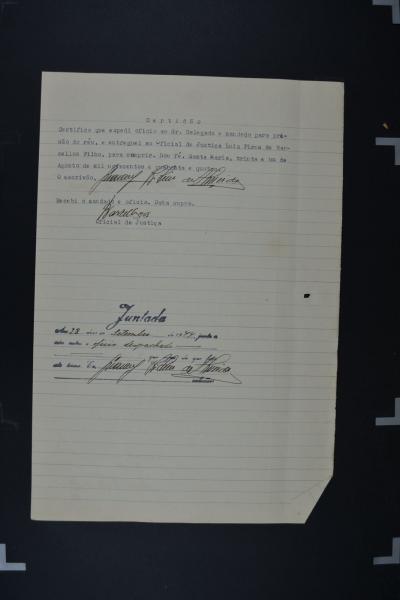 Certidão
Certifico que expedi oficio ao dr. Delegado e mandado para pri-
são do réu, e entreguei ao Oficial de Justiça Luiz Pires de Bar-
cellos Filho, para cumprir. Dou fé. Santa Maria, trinta e um de
Agosto de mil novecentos e quarenta e quatro.
O escrivão,
Recebi o mandado e oficio. Data supra.
Barcellos
Oficial de Justiça
Juntada
Aos 28 dias de Setembro de 1944, junto a
oficio despachado
que faço do que faço